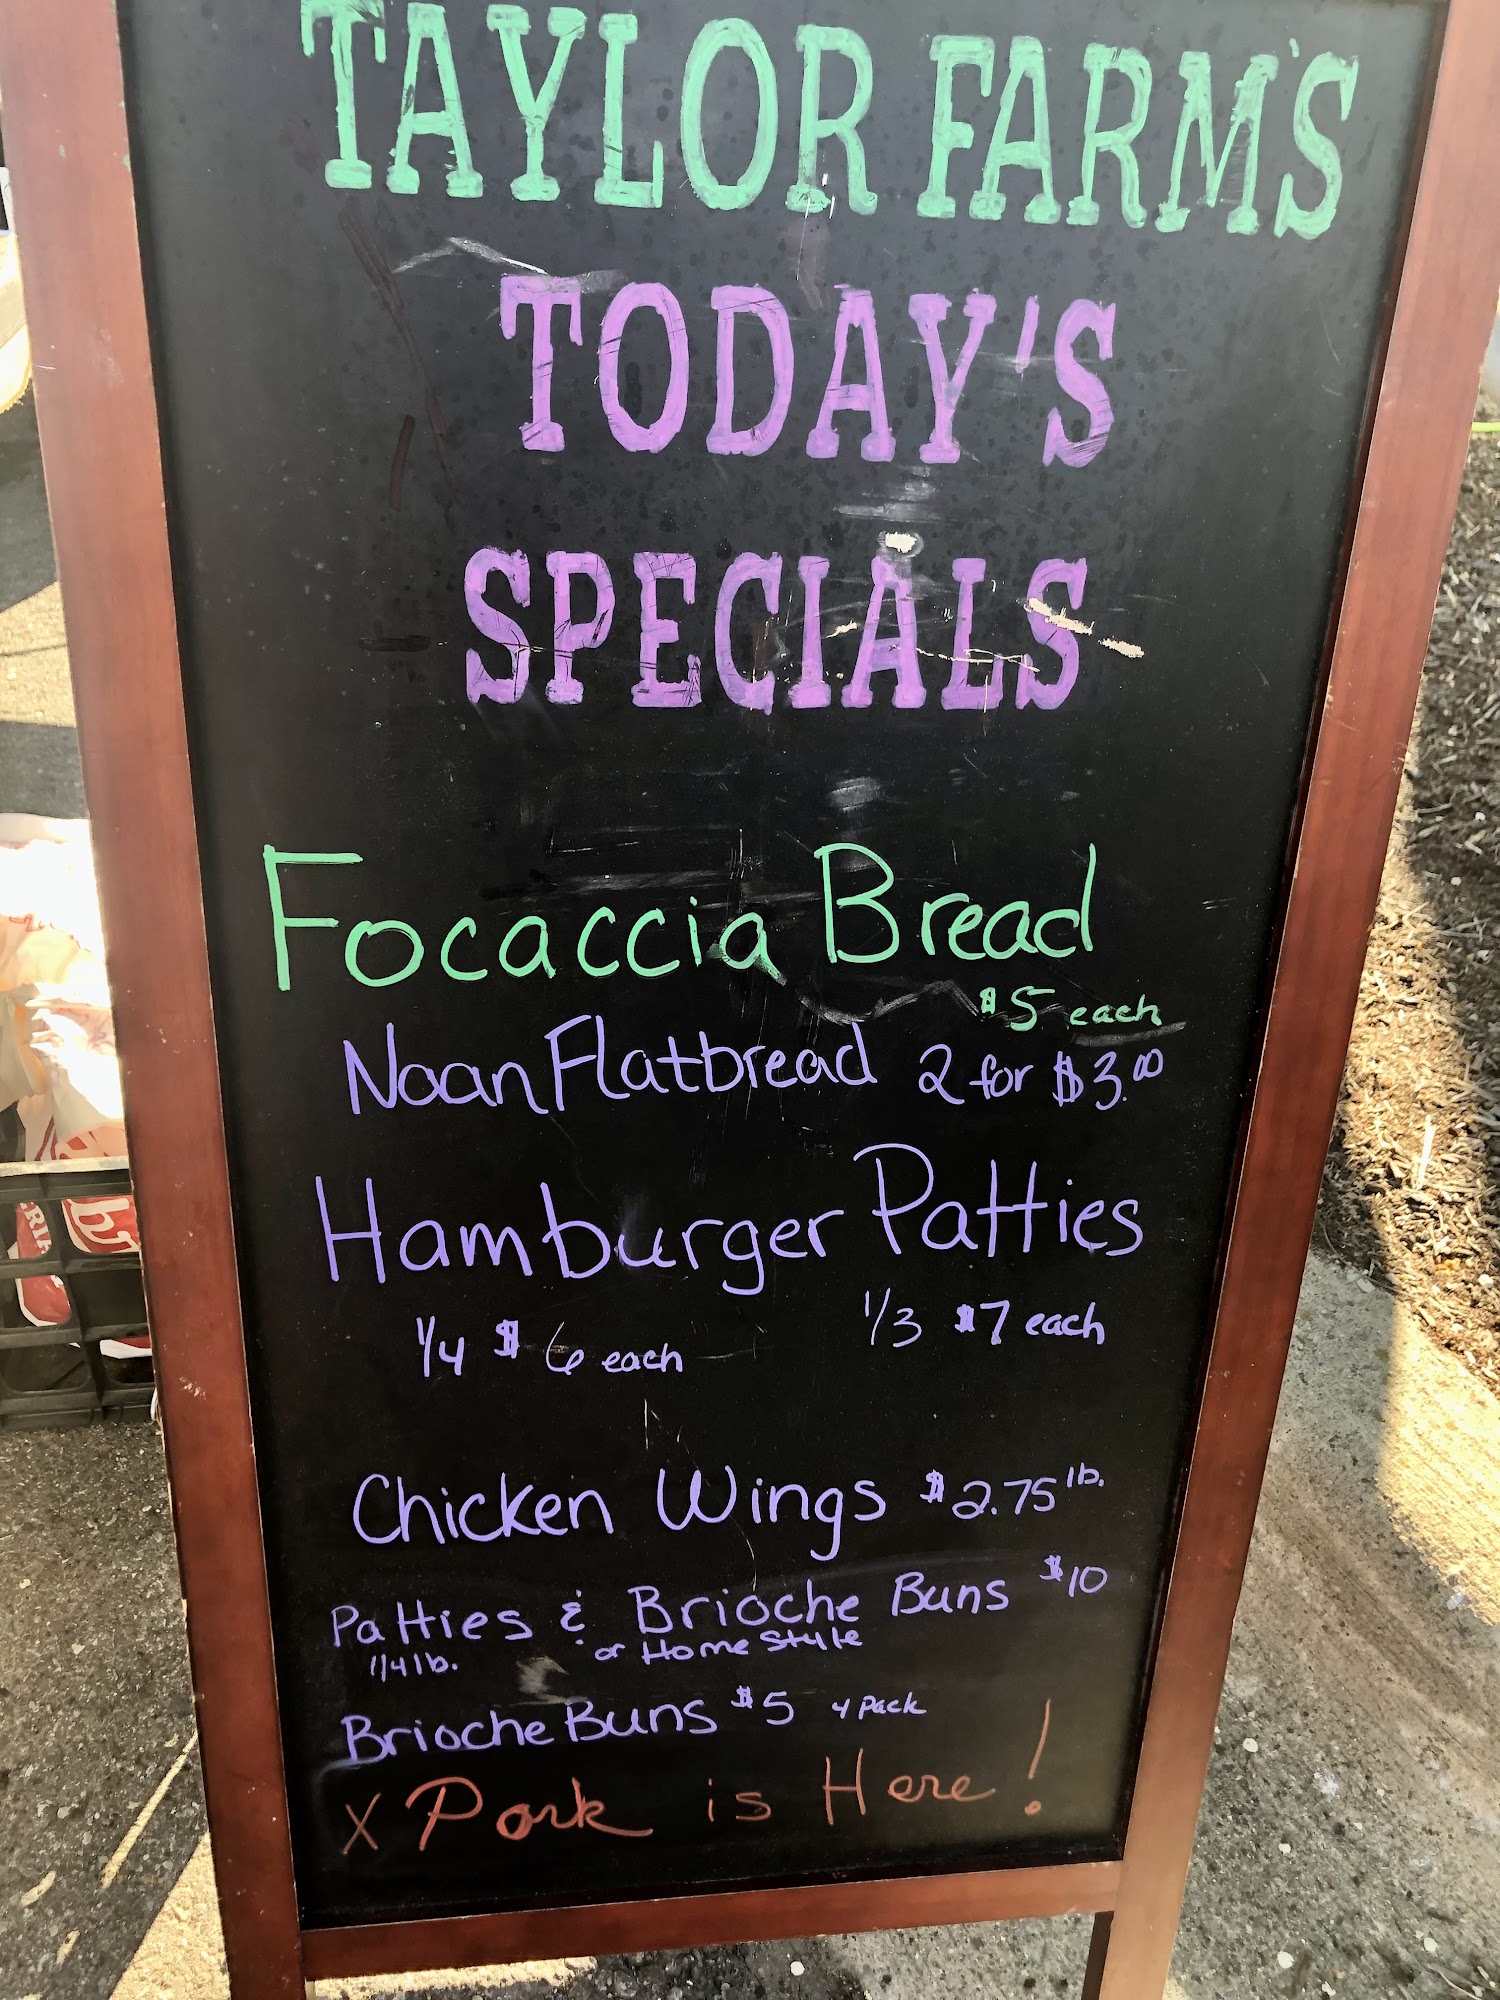 TAYLOR FARM'S
TODAY'S
SPECIALS
Focaccia Bread
$5 each
Naan Flatbread 2 for $3.00
Hamburger Patties
1/4 $6 each 1/3 $7 each
Chicken Wings $2.75 lb.
Patties & Brioche Buns $10
1/4 lb. or Home Style
Brioche Buns $5 4 Pack
X Pork is Here!